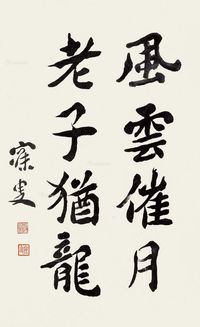 風雲催月
老子猶龍
寐叟